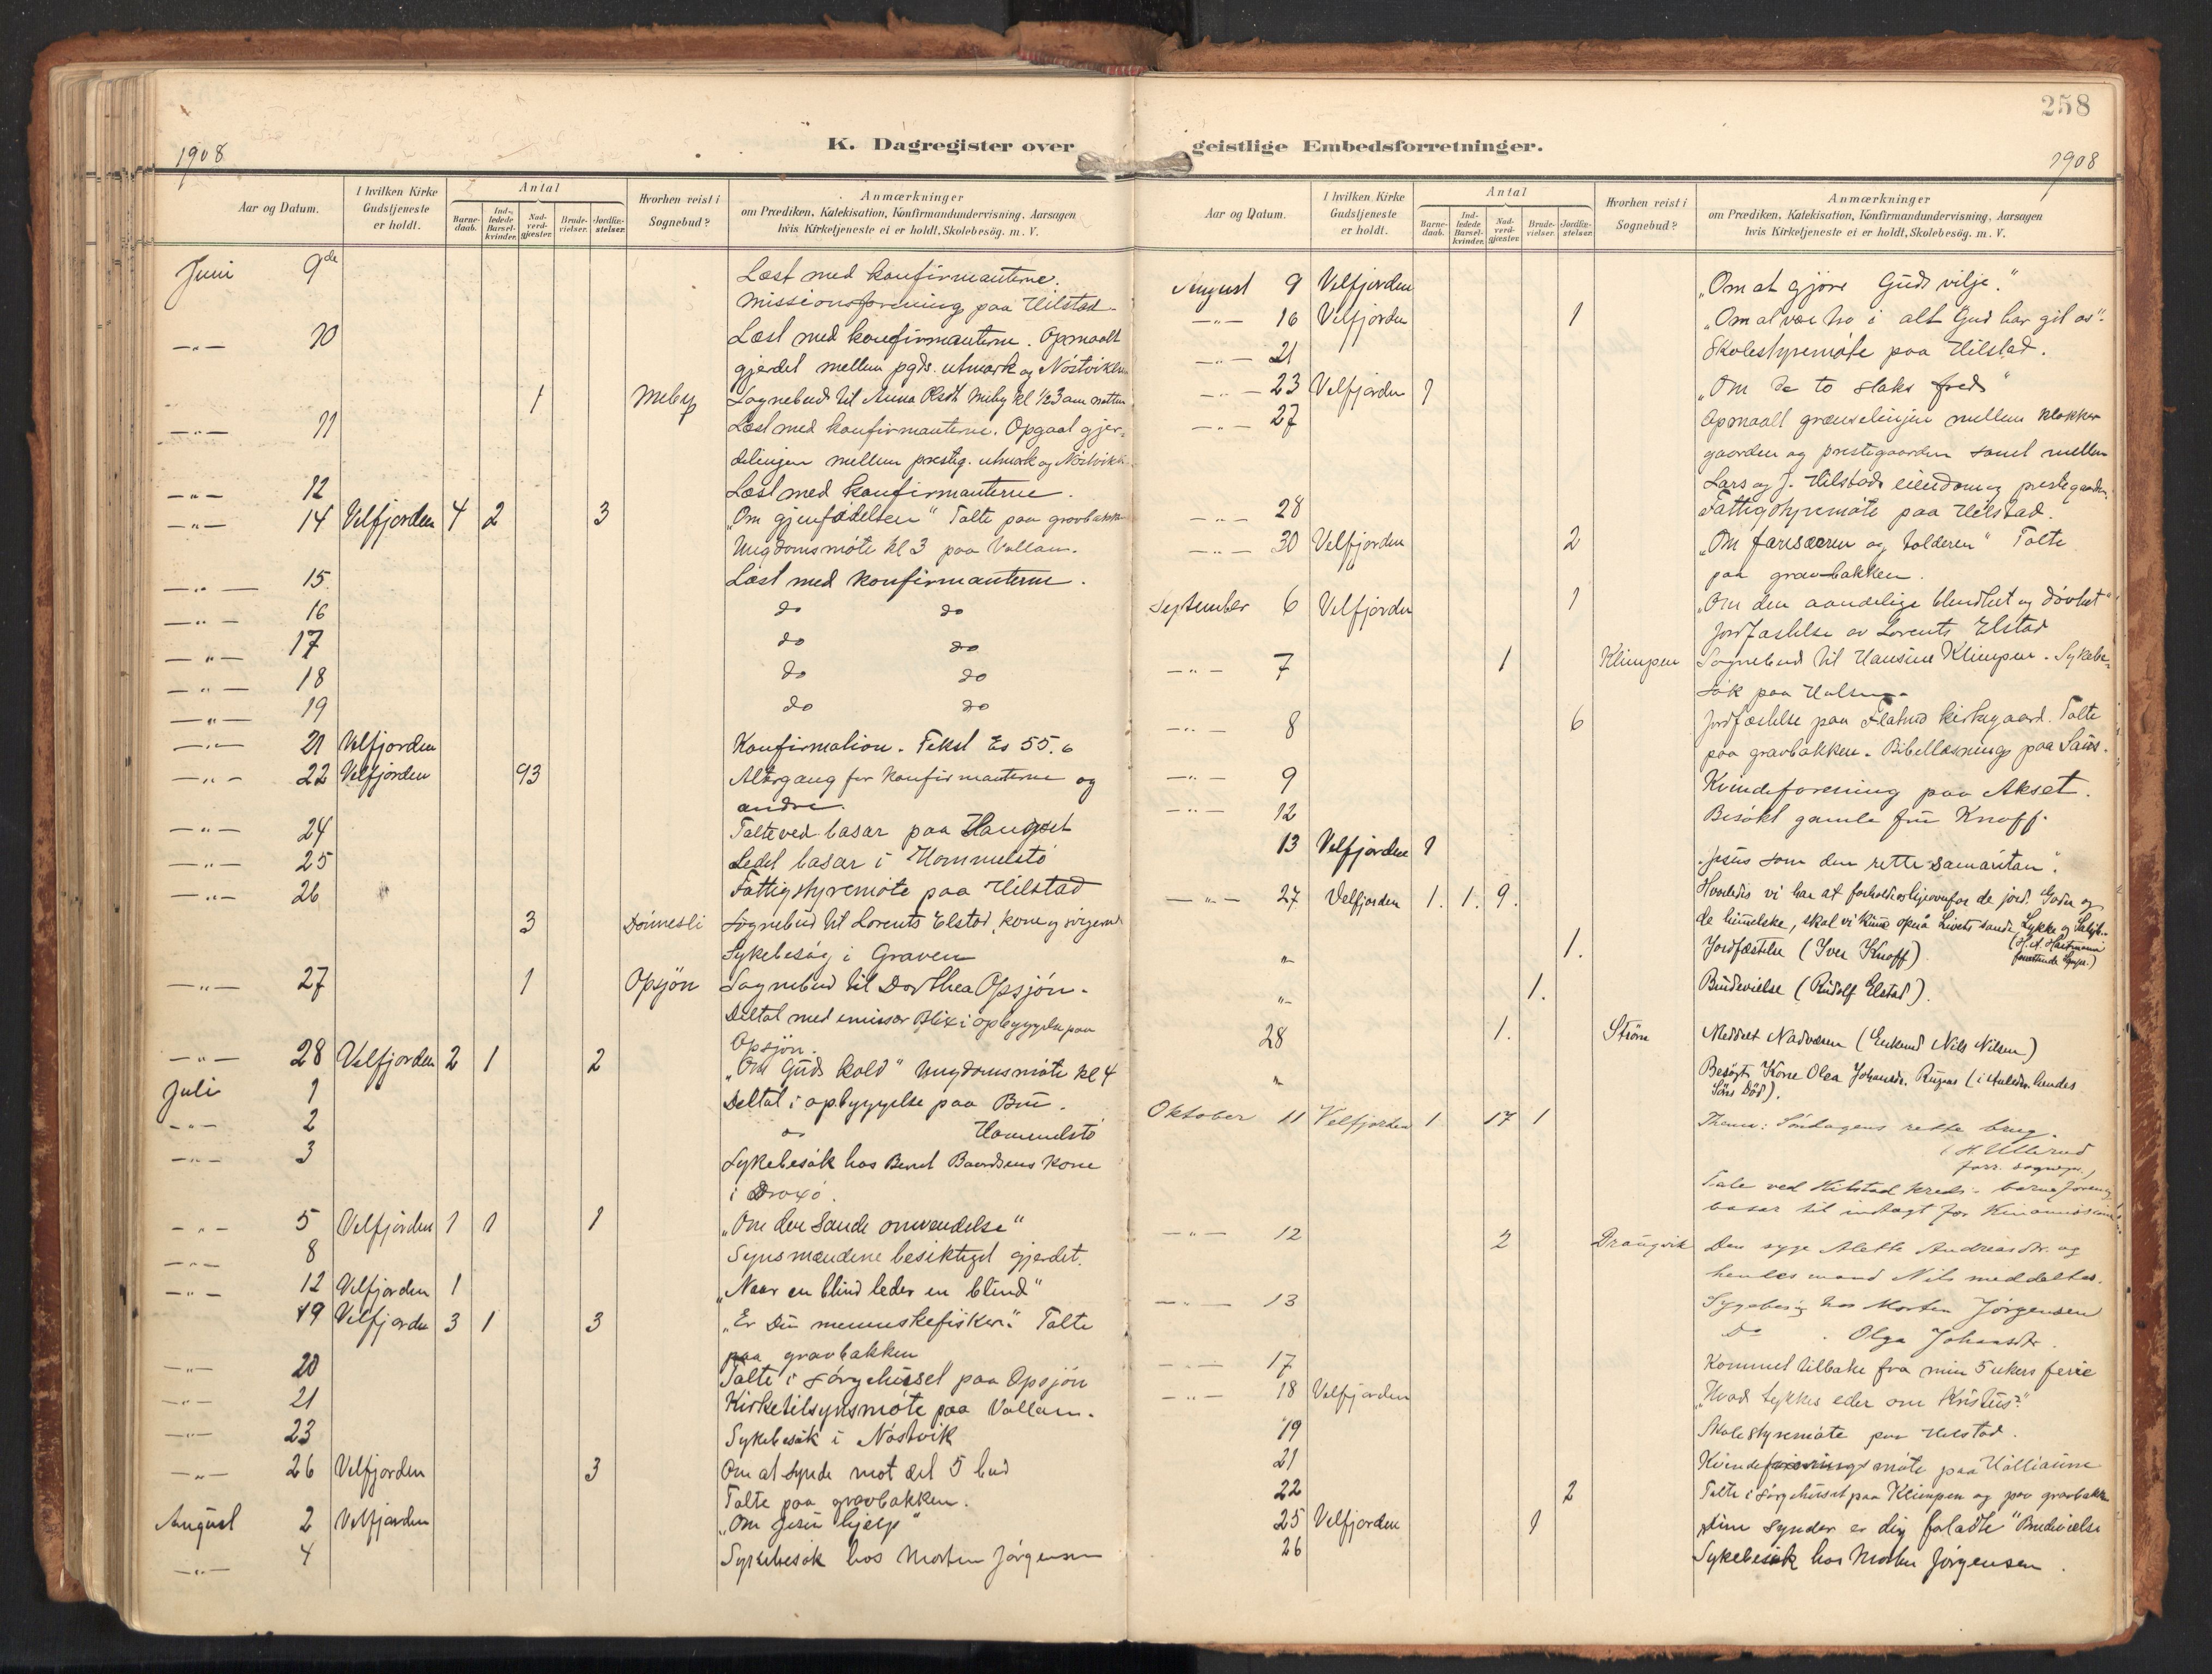 258
K. Dagregister over geistlige Embedsforretninger.
1908
1908
Aar og Datum.
I hvilken Kirke Gudstjeneste er holdt.
Antal
Barne-daab.
Ind-ledede Barsel-kvinder.
Nad-verd-gjester.
Brude-vielser.
Jordfæ-stelser.
Hvorhen reist i Sognebud?
Anmærkninger
om Prædiken, Katekisation, Konfirmandundervisning, Aarsagen
hvis Kirketjeneste ei er holdt, Skolebesøg. m. V.
Juni 9de Læst med konfirmanterne.
Missionsforening paa Hilstad
—"— 10 Læst med konfirmanterne. Opmaalt
gjerdet mellem pgds. utmark og Nöstvikens
1 Meby Sognebud til Anna Olsdt Meby kl ½3 om natten
—"— 11 Læst med konfirmanterne. Opgaat gjer-
delinjen mellem prestg. utmark og Nöstvik
—"— 12 Læst med konfirmanterne.
—"— 14 Velfjorden 4 2 3 "Om gjenfødelsen" Talte paa gravbakken
Ungdomsmöte kl 3 paa Vollan.
—"— 15. Læst med konfirmanterne.
—"— 16 do do
—"— 17 do do
—"— 18 do do
—"— 19 do do
—"— 21 Velfjorden Konfirmation. Tekst Es 55.6
—"— 22 Velfjorden 93 Altergang for konfirmanterne og
andre.
—"— 24 Talte ved basar paa Haugset
—"— 25 Ledet basar i Hommelstö
—"— 26 Fattigstyremöte paa Hilstad
3 Sognebud til Lorents Elstad, kone og svigermd
Sykebesög i Graven
—"— 27 1 Opsjön Sognebud til Dorthea Opsjön.
Deltat med emissær Blix i opbyggelse paa
Opsjön.
—"— 28 Velfjorden 2 1 2 "Om Guds kald" Ungdomsmöte kl 4
Juli 1 Deltat i opbyggelse paa Bru.
—"— 2 do Hommelstö
—"— 3 Sykebesök hos Bernt Baardsens kone
i
—"— 5 Velfjorden 1 1 1 "Om den sande omvendelse"
—"— 8 Synsmændene besiktiget gjerdet.
—"— 12 Velfjorden 1 "Naar en blind leder en blind"
19 Velfjorden 3 1 3 "Er Du menneskefisker?" Talte
paa gravbakken
—"— 20 Talte i sörgehuset paa Opsjön
—"— 21 Kirketilsynsmöte paa Vollan.
—"— 23 Sykebesök i Nöstvik
—"— 26 Velfjorden 3 Om at synde mot det 5 bud
Talte paa gravbakken.
August 2 Velfjorden "Om Jesu hjelp"
—"— 4 Sykebesök hos Morten Jörgensen
Aar og Datum.
I hvilken Kirke Gudstjeneste er holdt.
Antal
Barne-daab.
Ind-ledede Barsel-kvinder.
Nad-verd-gjester.
Brude-vielser.
Jordfæ-stelser.
Hvorhen reist i Sognebud?
Anmærkninger
om Prædiken, Katekisation, Konfirmandundervisning, Aarsagen
hvis Kirketjeneste ei er holdt, Skolebesøg. m. V.
August 9 Velfjorden "Om at gjöre Guds vilje."
—"— 16 Velfjorden 1 "Om at være tro i alt Gud har git os".
—"— 21 Skolestyremöte paa Hilstad.
—"— 23 Velfjorden 1 "Om de to slaks fred"
—"— 27 Opmaalt grænselinjen mellem klokker
gaarden og prestegaarden samt mellem
Lars og J. Hilstads eiendom og prestegaarden.
—"— 28 Fattigstyremöte paa Hilstad.
—"— 30 Velfjorden 2 "Om farisæeren og tolderen" Talte
paa gravbakken.
September 6 Velfjorden 1 "Om den aandelige blindhet og dövhet"
Jordfæstelse av Lorents Elstad
—"— 7 1 Klimpen Sognebud til Hansine Klimpen. Sykebe-
sök paa
—"— 8 6 Jordfæstelse paa kirkegaard. Talte
paa gravbakken. Bibellæsning paa Saus.
—"— 9 Kvindeforening paa Akset.
—"— 12 Besökt gamle fru Knoff.
13 Velfjorden 1 Jesus som den rette samaritan".
—"— 27 Velfjorden 1. 1. 9. Hvorledes vi har at forholde os ligeoverfor de jord. Goder og
de himmelske, skal vi kunne opnå Livets sande Lykke og Saligh.
" 1. Jordfæstelse (Iver Knoff).
" 1. Brudevielse (Rudolf Elstad).
28 1. Ström Meddelt Nadveren (Enkemd Nils Nilsen)
" Besögt Kone Olea Johansdr. (i Anledn. hendes
Söns Död).
Oktober 11 Velfjorden 1 17 1 Thema: Söndagens rette brug.
(H. Ullerud
Tale ved Hilstad kreds- barneforening
basar til indtægt for Kinamissionen
—"— 12 2 Drangvik Den syge Alette Andreasdtr. og
hendes mand Nils meddeltes.
—"— 13 Sygebesög hos Morten Jörgensen
Do. Olga Johansdtr.
—"— 17 Kommet tilbake fra min 5 ukers ferie
—"— 18 Velfjorden "Hvad tykkes eder om Kristus?"
19 Skolestyremöte paa Hilstad.
21 Kvindeforeningsmöte paa
22 2 Talte i sörgehuset paa Klimpen og paa gravbakken
25 Velfjorden 1 Dine synder er dig forladte" Brudevielse
26 Sykebesök hos Morten Jörgensen.